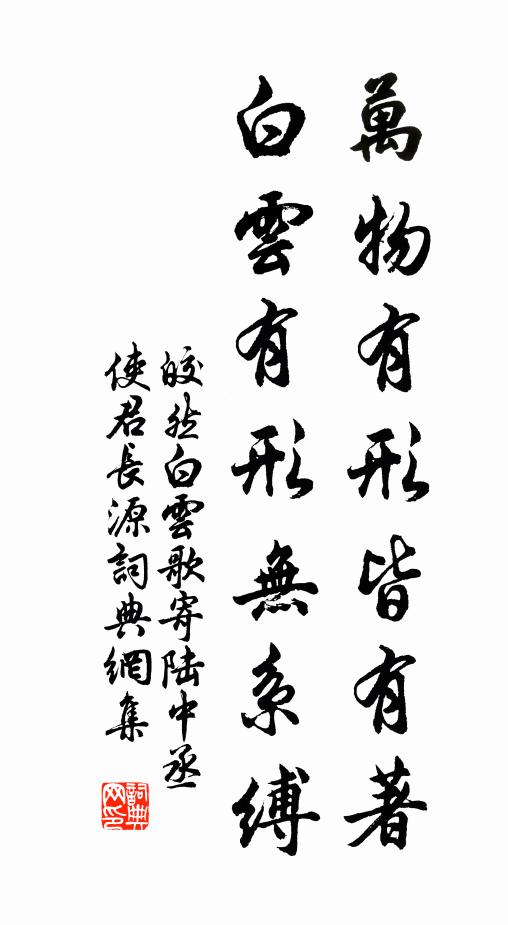 萬物有形皆有著
白雲有形無系縛
皎然白雲歌寄陸中丞
使君長源詞典網集
詞典
网印